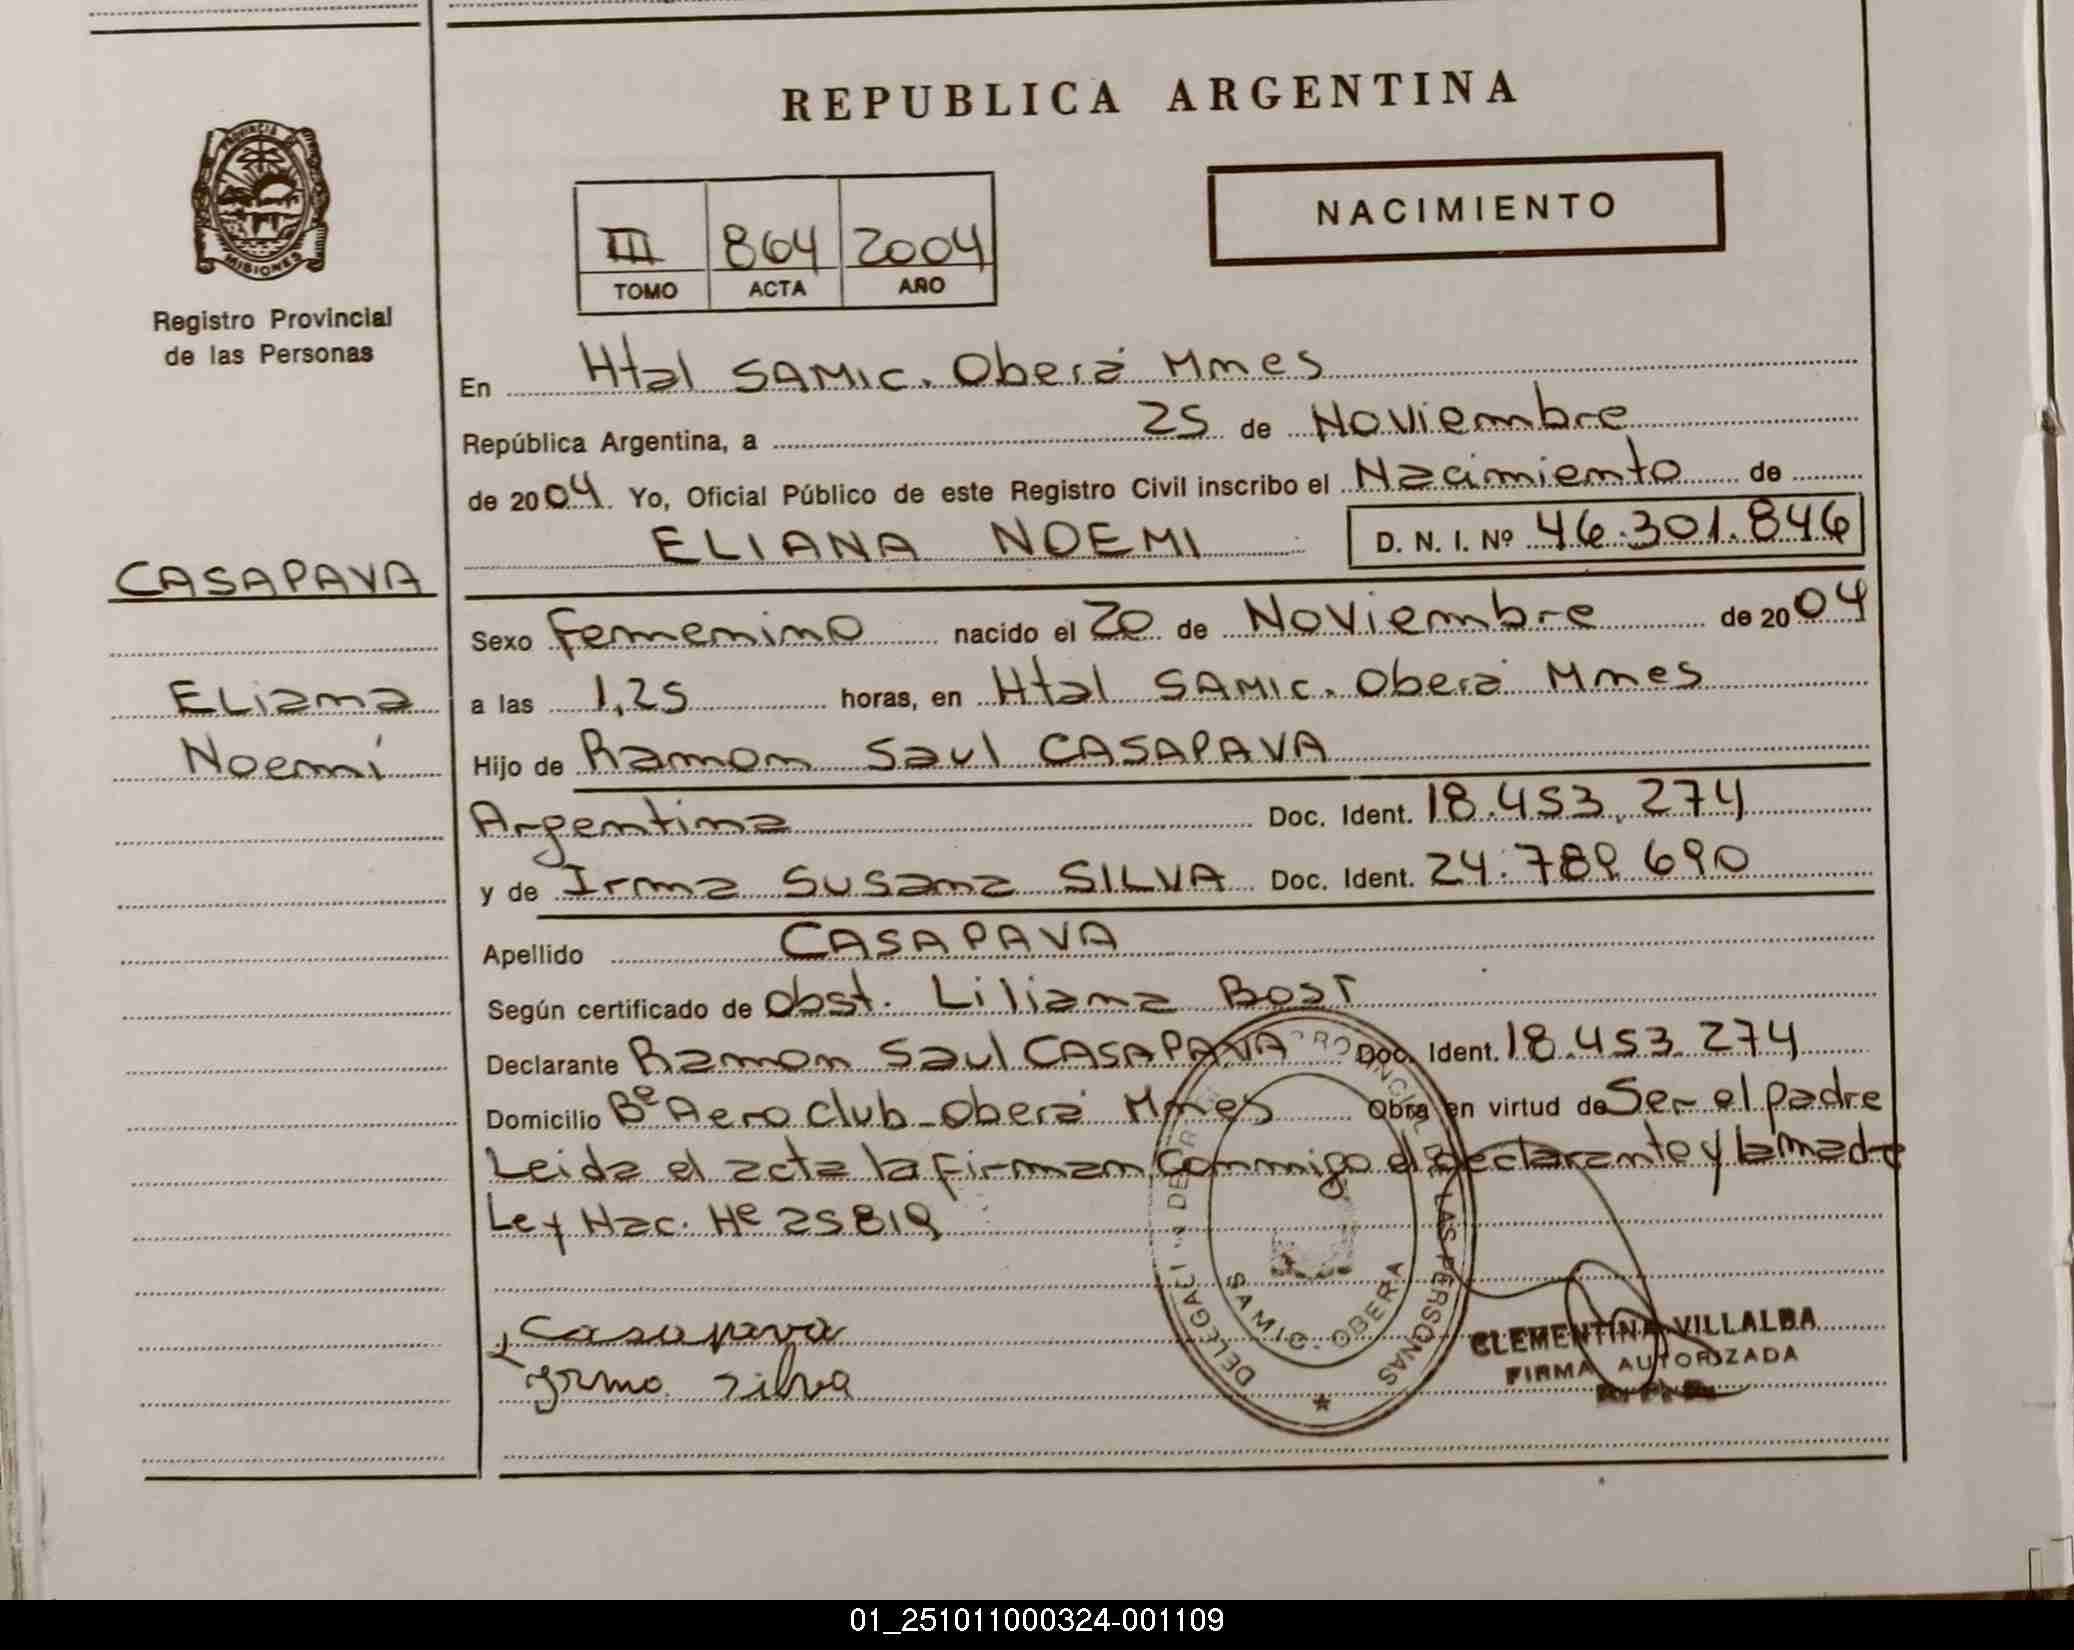 REPUBLICA ARGENTINA
PROVINCIA DE
MISIONES
Registro Provincial
de las Personas
III 864 2004
TOMO ACTA AÑO
NACIMIENTO
En Htal SAMIC. Oberá Mnes
República Argentina, a 25 de Noviembre
de 2004. Yo, Oficial Público de este Registro Civil inscribo el Nacimiento de
ELIANA NOEMI D. N. I. Nº 46.301.846
CASAPAVA
Eliana
Noemí
Sexo Femenino nacido el 20 de Noviembre de 2004
a las 1,25 horas, en Htal SAMIC. Oberá Mnes
Hijo de Ramon Saul CASAPAVA
Argentina Doc. Ident. 18.453.274
y de Irma Susana SILVA Doc. Ident. 24.789.690
Apellido CASAPAVA
Según certificado de Obst. Liliana
Declarante Ramon Saul CASAPAVA Doc. Ident. 18.453.274
Domicilio Bº Aero Club - Oberá Mnes Obra en virtud de Ser el padre
Leida el acta la firman conmigo el declarante y la madre
Ley Nac. Nº 25819
Casapava
Irma Silva
DE LAS PERSONAS
SAMIC - OBERA
CLEMENTINA VILLALBA
FIRMA AUTORIZADA
01_251011000324-001109